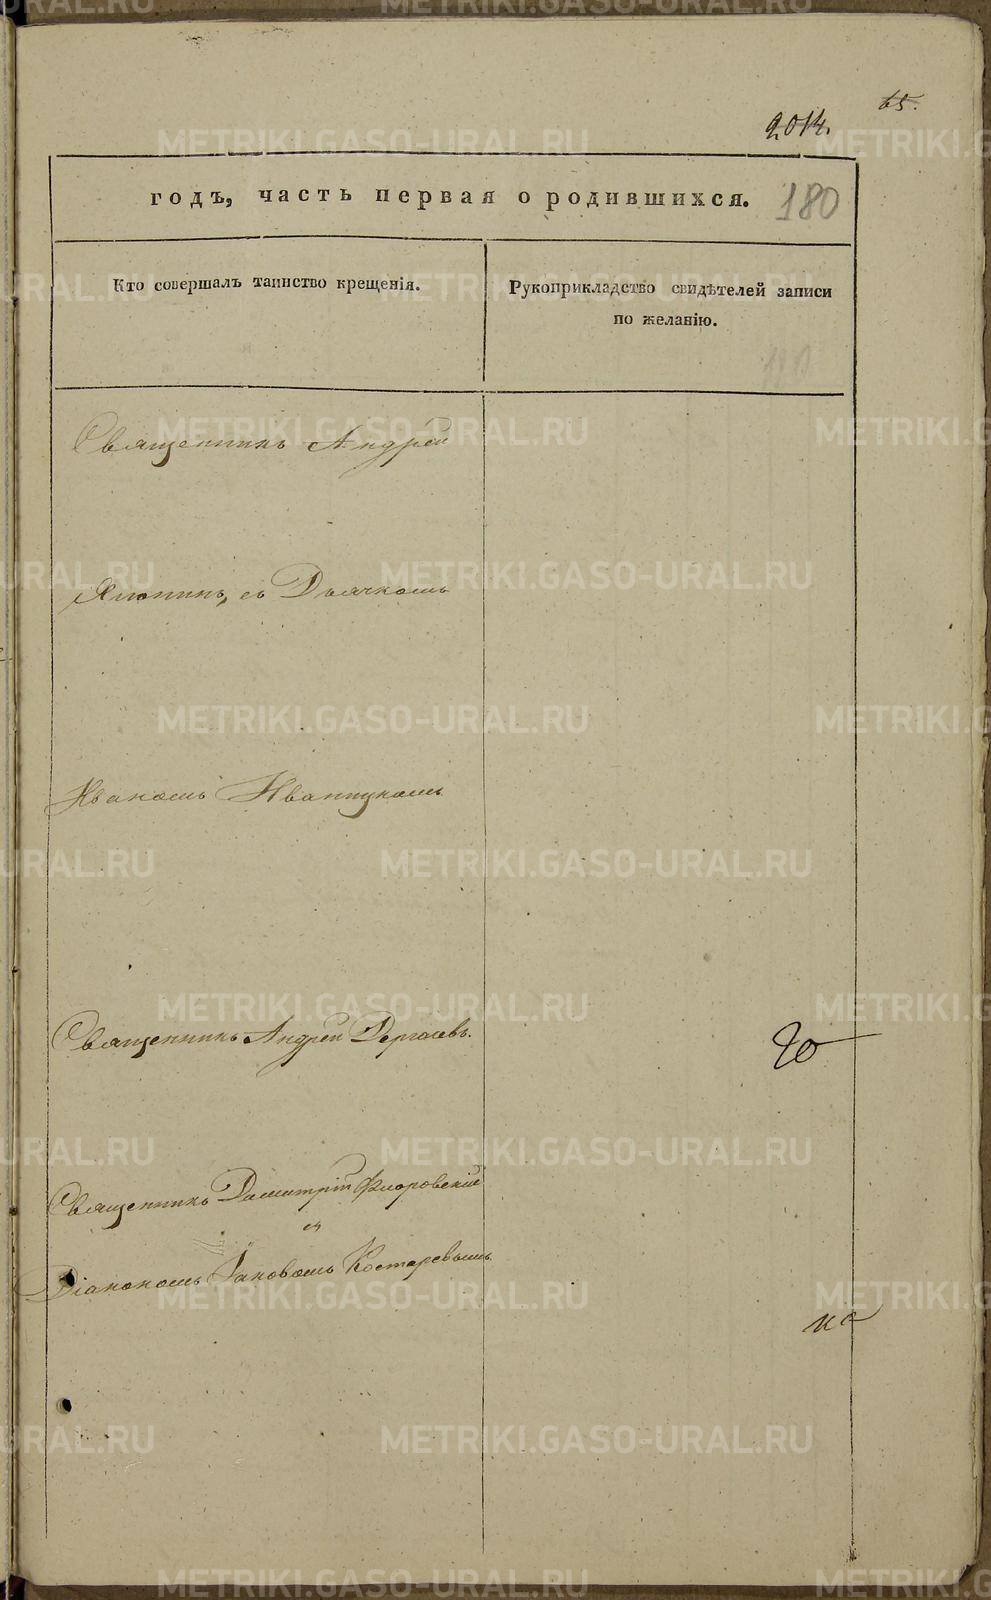 65.
2014.
годъ, часть первая о родившихся. 180
Кто совершалъ таинство крещенія.
Рукоприкладство свидѣтелей записи
по желанію.
Священникъ Андрей
съ Дьячкомъ
Иваномъ Иваницкомъ
Священникъ Андрей Дергаевъ.
Священникъ Димитрій Флоровскій
съ
Діакономъ Іаковомъ Костаревымъ
METRIKI.GASO-URAL.RU